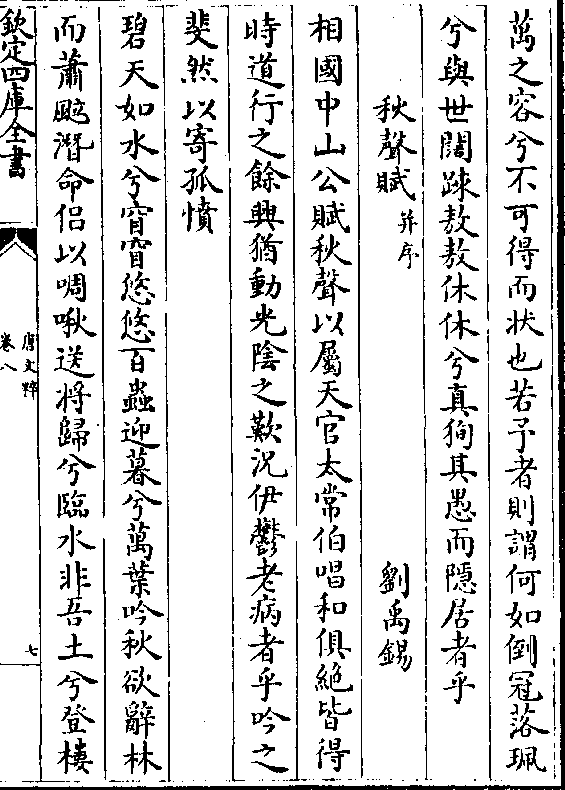 萬之容兮不可得而状也若予者則謂何如倒冠落珮
兮與世闊踈敖敖休休兮真狥其愚而隱居者乎
秋聲賦并序 劉禹錫
相國中山公賦秋聲以屬天官太常伯唱和俱絶皆得
時道行之餘興猶動光陰之歎況伊鬱老病者乎吟之
斐然以寄孤憤
碧天如水兮窅窅悠悠百蟲迎暮兮萬葉吟秋欲辭林
而蕭颼潛命侣以啁啾送將歸兮臨水非吾土兮登樓
欽定四庫全書
唐文粹
卷八
七